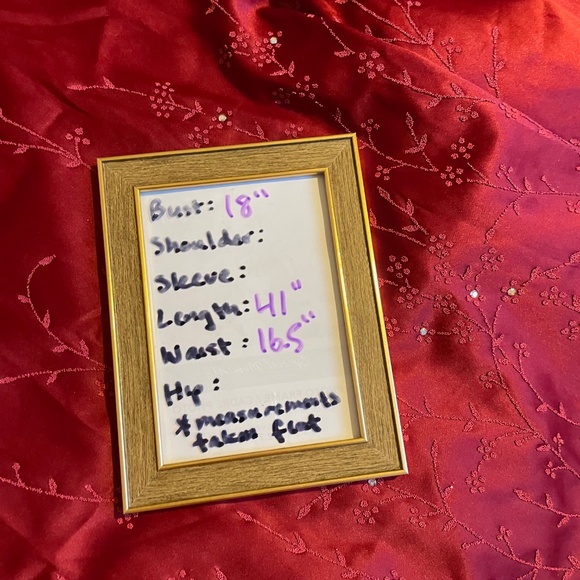 Bust: 18"
Shoulder:
Sleeve:
Length: 41"
Waist: 16.5"
Hip:
* measurements
taken flat